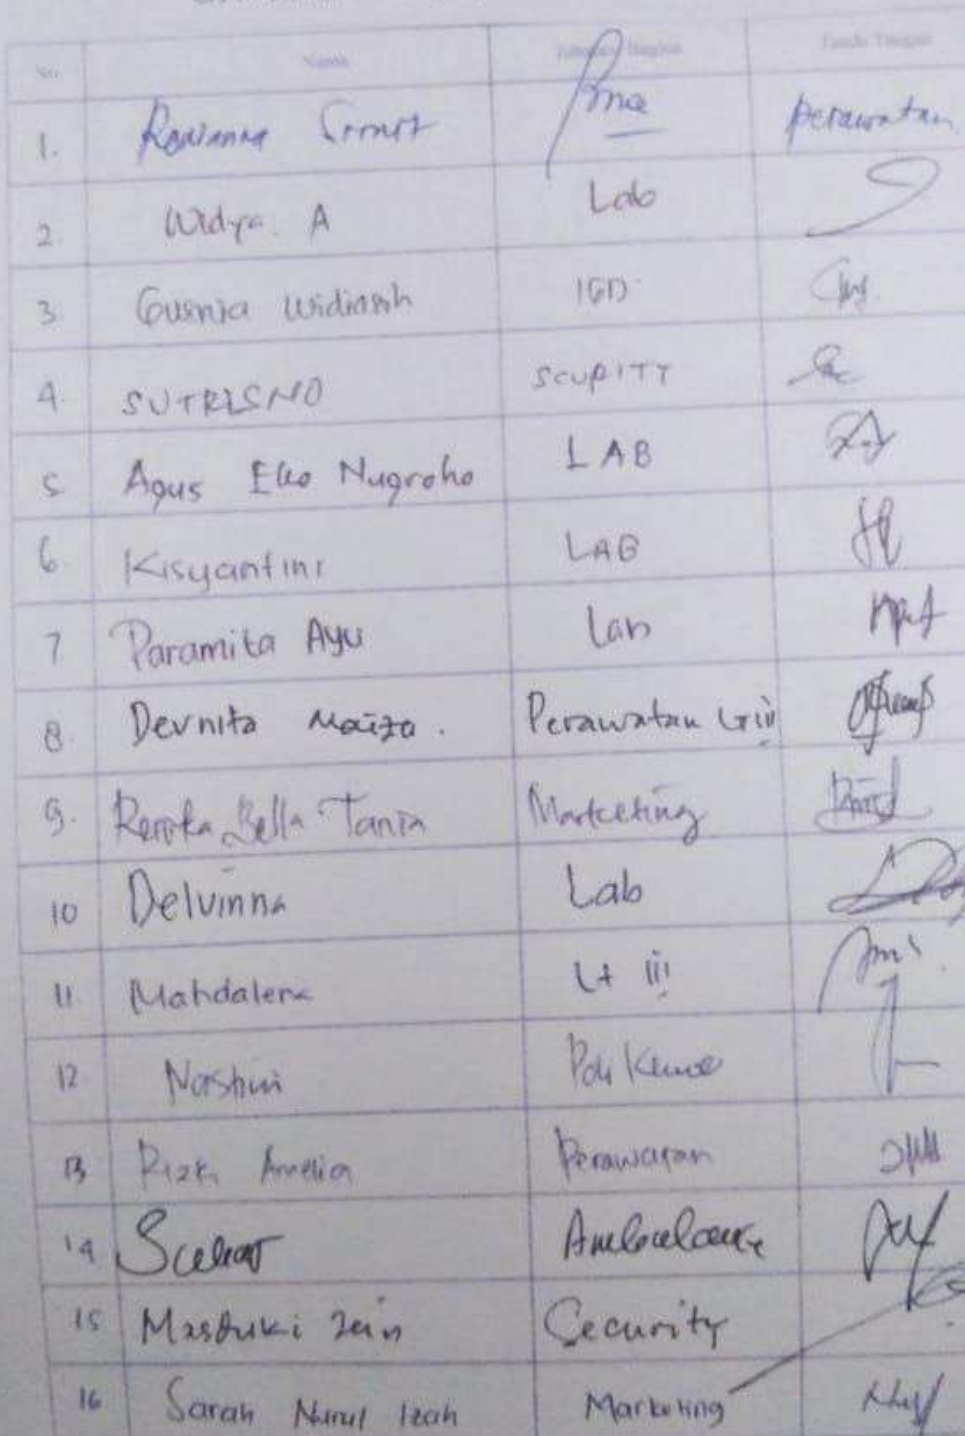 No. Nama Jabatan/ Bagian Tanda Tangan
1. perawatan
2. Widya. A Lab
3 Gusnia Widiasih IGD
4. SUTRISNO SCUPITY
5 Agus Eko Nugroho LAB
6. Kisyantini LAB
7 Paramita Ayu Lab
8. Devnita Maiza. Perawatan Lt iii
9. Bella Tania Marketing
10 Delvinna Lab
11 Mahdalena Lt iii
12 Poli
13 Rizki Amelia Perawatan
14 Ambulance
15 Masduki Zein Security
16 Sarah Nurul Izah Marketing